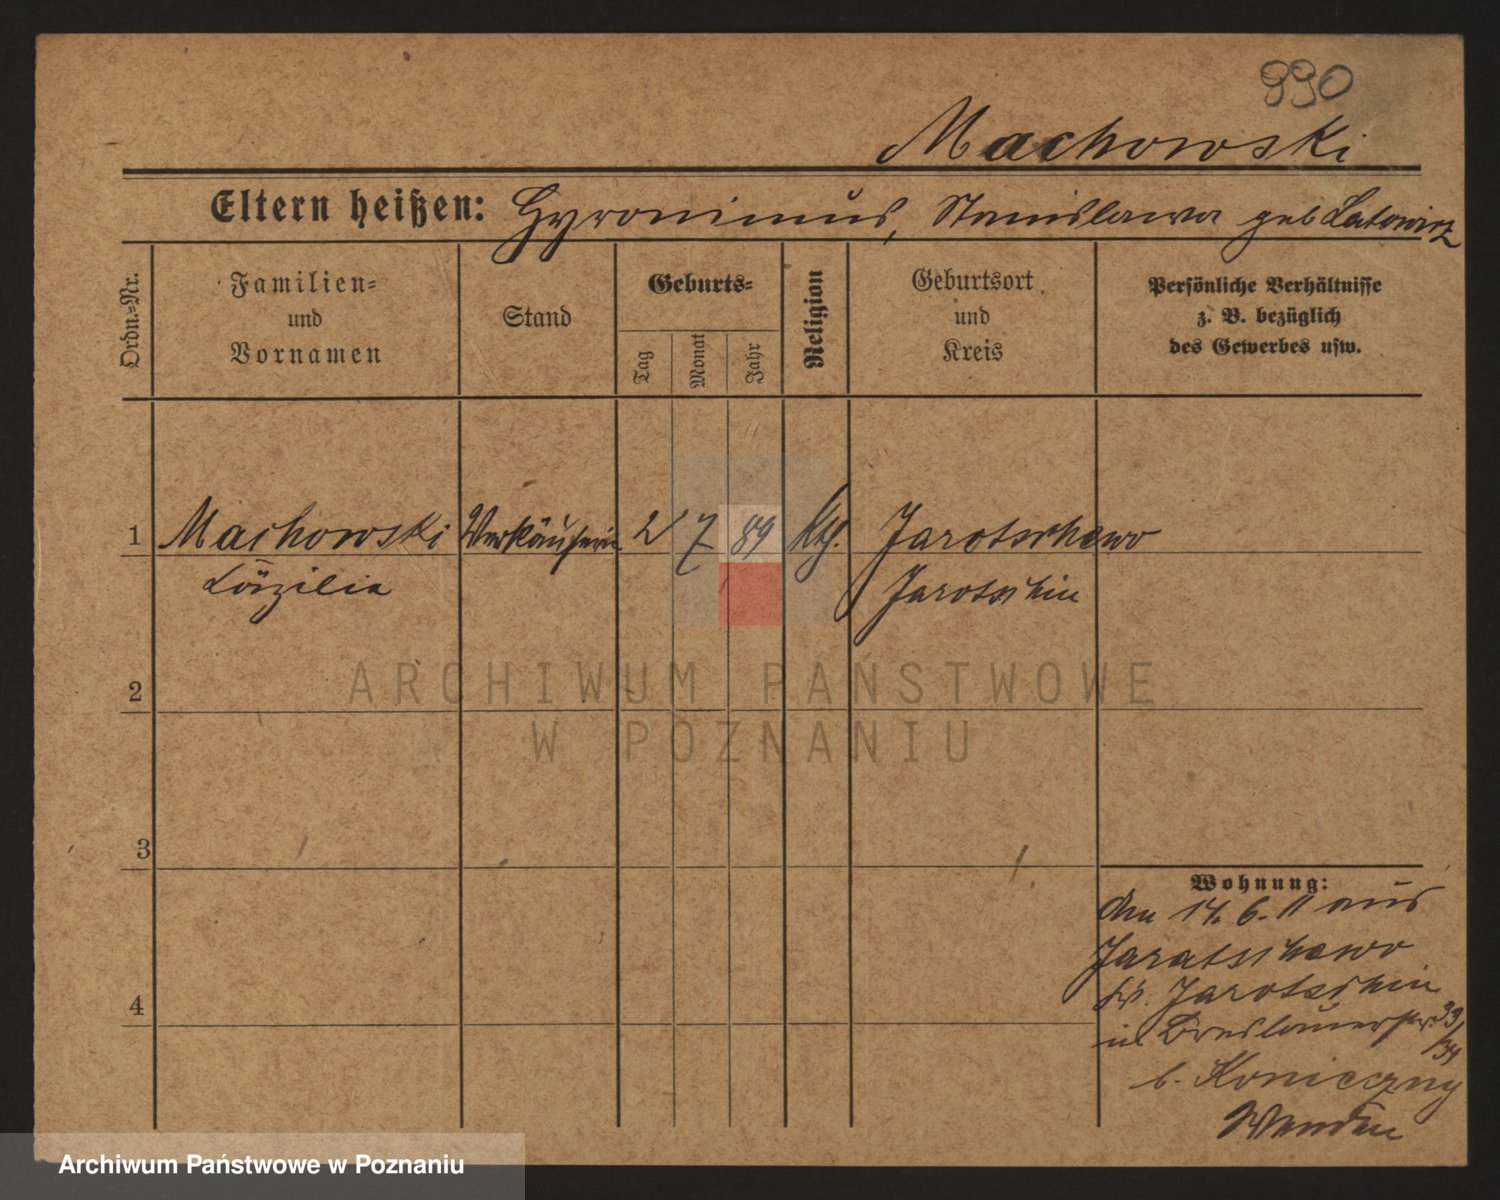 990
Machowski
Eltern heißen: Hyronimus, Stanislawa geb Latowicz
Ordn.-Nr.
Familien-
und
Vornamen
Stand
Geburts-
Tag
Monat
Jahr
Religion
Geburtsort
und
Kreis
Persönliche Verhältnisse
z. B. bezüglich
des Gewerbes usw.
1 Machowski Verkäuferin 2 7 89 kth. Jarotschewo
Cäzilia Jarotschin
2
3
4
Wohnung:
den 14. 6. 11 aus
Jaratschewo
Kr. Jarotschin
in Breslauerstr. 33/34
b. Konieczny
ARCHIWUM PAŃSTWOWE
W POZNANIU
Archiwum Państwowe w Poznaniu